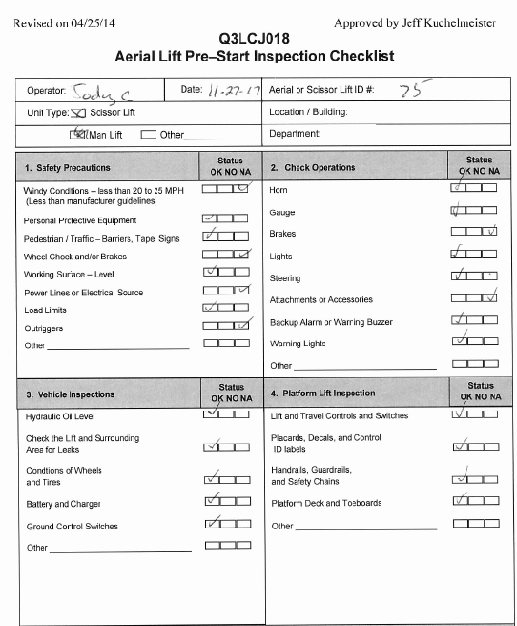 Revised on 04/25/14 Approved by Jeff Kuchelmeister
Q3LCJ018
Aerial Lift Pre–Start Inspection Checklist
Operator: Date: 11-27-17 Aerial or Scissor Lift ID #: 75
Unit Type: Scissor Lift Location / Building:
Man Lift Other Department
1. Safety Precautions Status OK NO NA
Windy Conditions – less than 20 to 25 MPH
(Less than manufacturer guidelines
Personal Protective Equipment
Pedestrian / Traffic – Barriers, Tape Signs
Wheel Chock and/or Brakes
Working Surface – Level
Power Lines or Electrical Source
Load Limits
Outriggers
Other
2. Check Operations Status OK NO NA
Horn
Gauge
Brakes
Lights
Steering
Attachments or Accessories
Backup Alarm or Warning Buzzer
Warning Lights
Other
3. Vehicle Inspections Status OK NO NA
Hydraulic Oil Level
Check the Lift and Surrounding
Area for Leaks
Conditions of Wheels
and Tires
Battery and Charger
Ground Control Switches
Other
4. Platform Lift Inspection Status OK NO NA
Lift and Travel Controls and Switches
Placards, Decals, and Control
ID labels
Handrails, Guardrails,
and Safety Chains
Platform Deck and Toeboards
Other